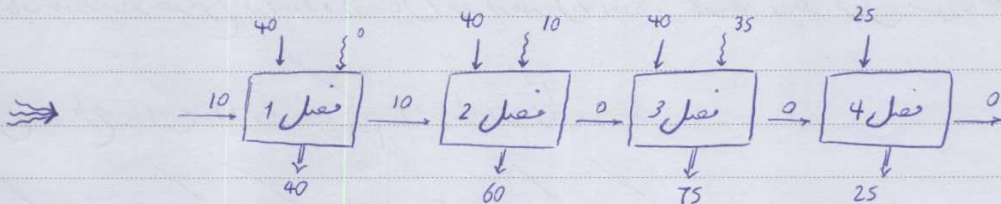 40 0 40 10 40 35 25
10 فصل 1 10 فصل 2 0 فصل 3 0 فصل 4 0
40 60 75 25